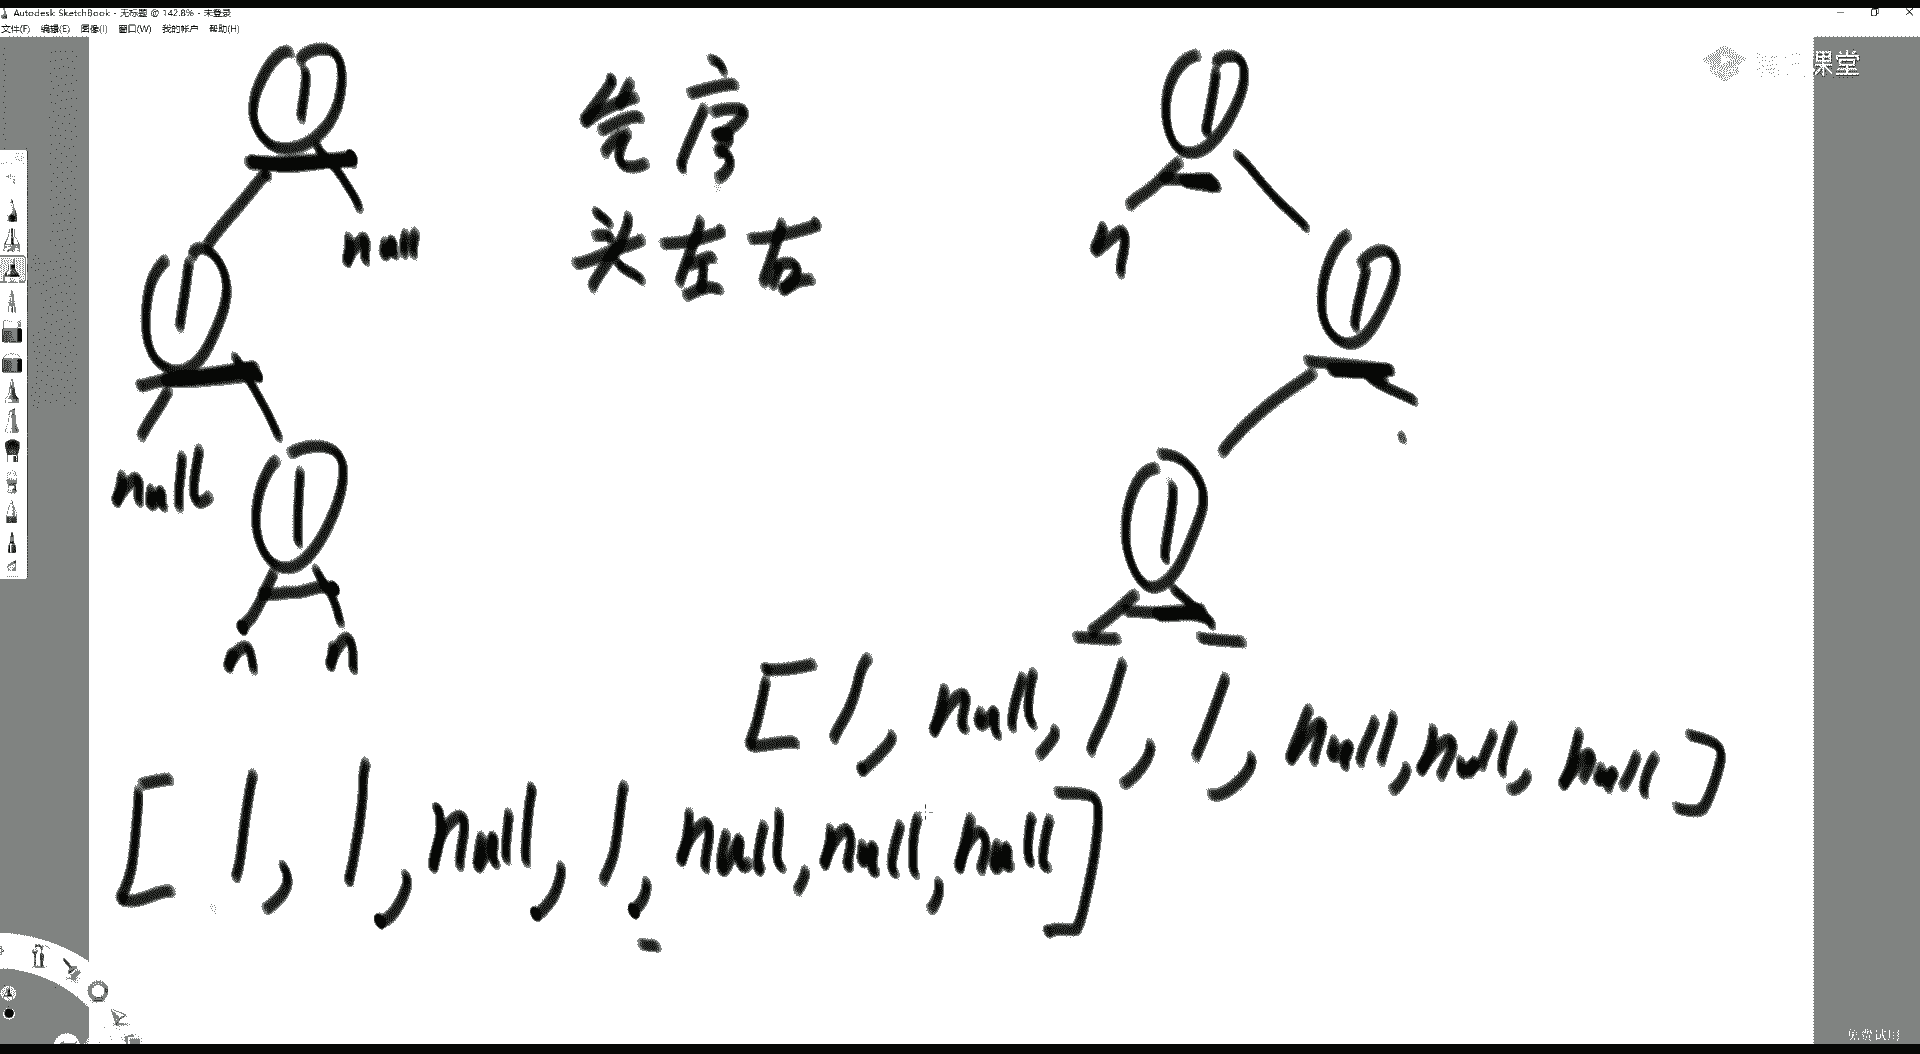 Autodesk SketchBook - 无标题 @ 142.8% - 未登录
文件(F) 编辑(E) 图像(I) 窗口(W) 我的帐户 帮助(H)
课堂
1
先序
1
null
头左右
n
1
1
null
1
1
n n
[1, null, 1, 1, null, null, null]
[1, 1, null, 1, null, null, null]
免费试用